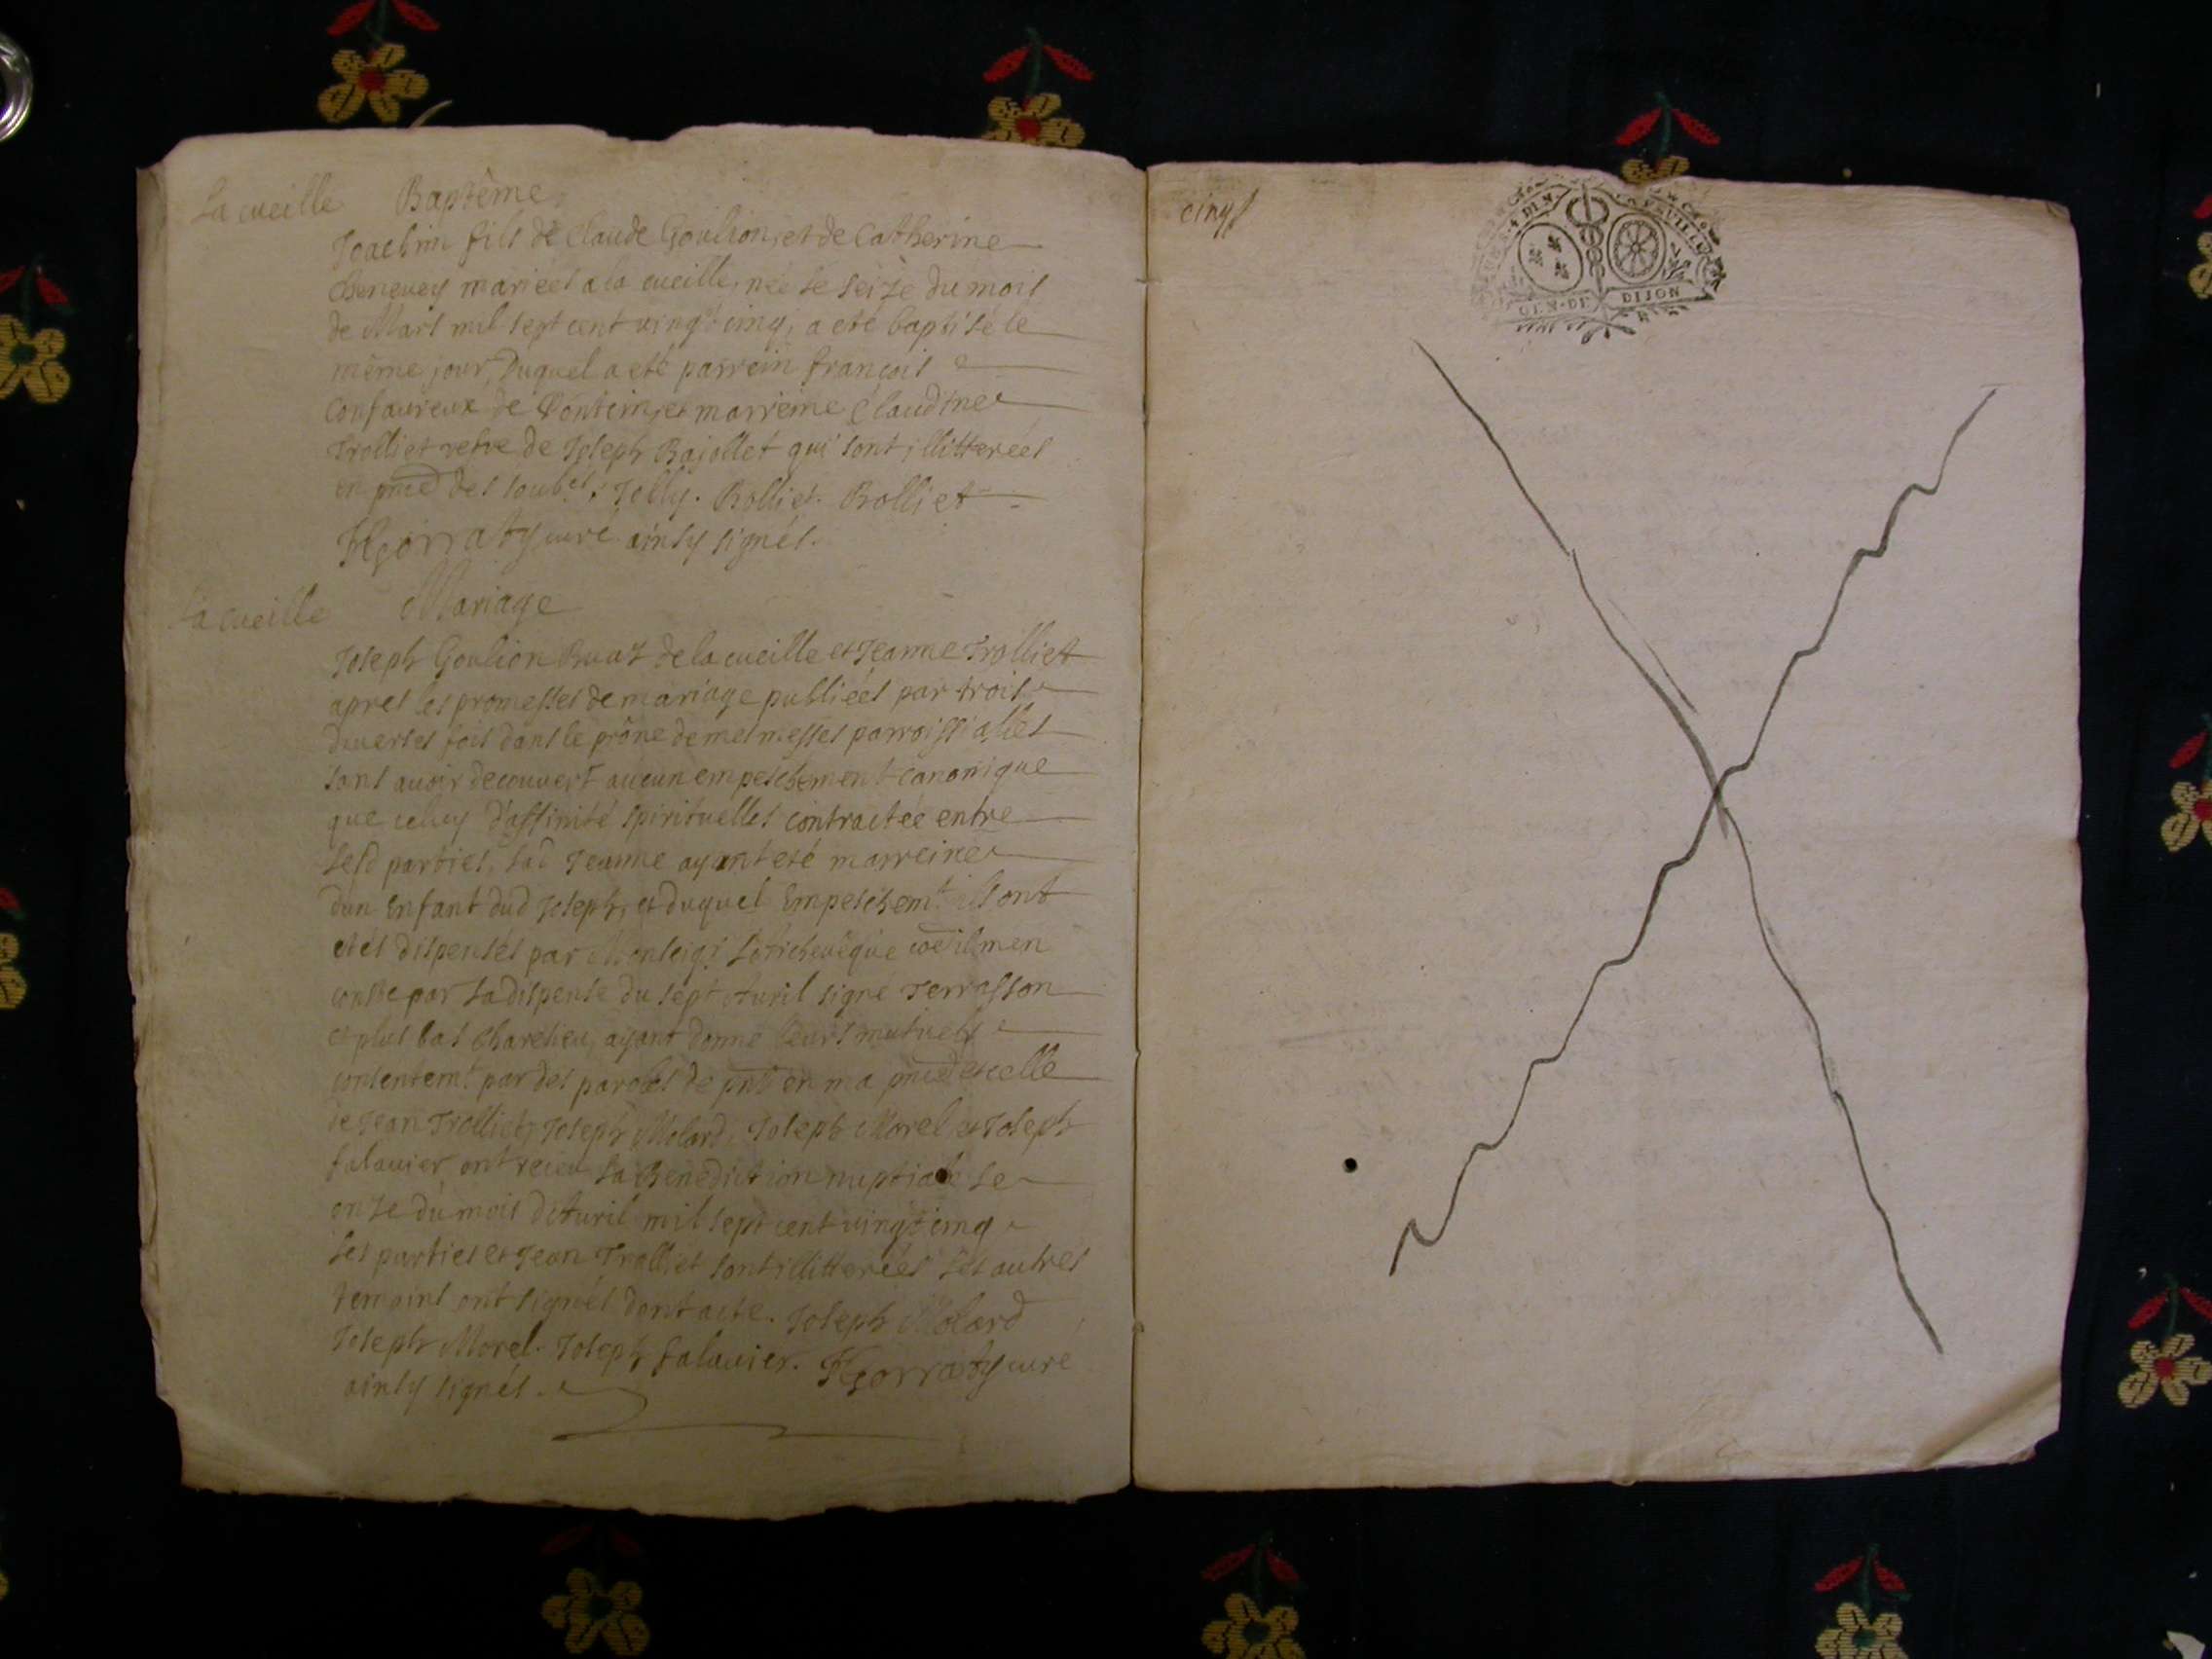 La cueille Baptême
Joachim fils de Claude Goulion, et de Catherine
mariées a la cueille, née le seize du mois
de Mars mil sept cent vingt cinq, a eté baptisé le
même jour, duquel a eté parrein françois
de et marreine Claudine
Trolliet vefve de Joseph Bajollet qui sont illitterées
en pnce des soub.es Jolly. Rolliet. Rolliet
curé ainsy signés.
La cueille Mariage
Joseph Goulion Buaz de la cueille et Jeanne Trolliet
apres les promesses de mariage publiées par trois
diverses fois dans le prône de mes messes parroissialles
sans avoir decouvert aucun empeschement canonique
que celuy d'affinité spirituelles contractée entre
lesd parties, lad Jeanne ayant eté marreine
d'un Enfant dud Joseph, et duquel Empeschem.t ils ont
etés dispensés par Monseig.r L'Archevêque coe il m'en
conste par sa dispense du sept Avril signé Terrasson
et plus bas ayant donné leurs mutuels
consentemt par des paroles de pnt en ma pnce et celle
de Jean Trolliet, Joseph Molard, Joseph Morel et Joseph
falavier, ont receu la Benediction nuptiale le
onze du mois d'Avril mil sept cent vingt cinq
les parties et Jean Trolliet sont illitterées les autres
temoins ont signés dont acte. Joseph Molard
Joseph Morel. Joseph falavier. curé
ainsy signés.
cinq
GEN·DE DIJON